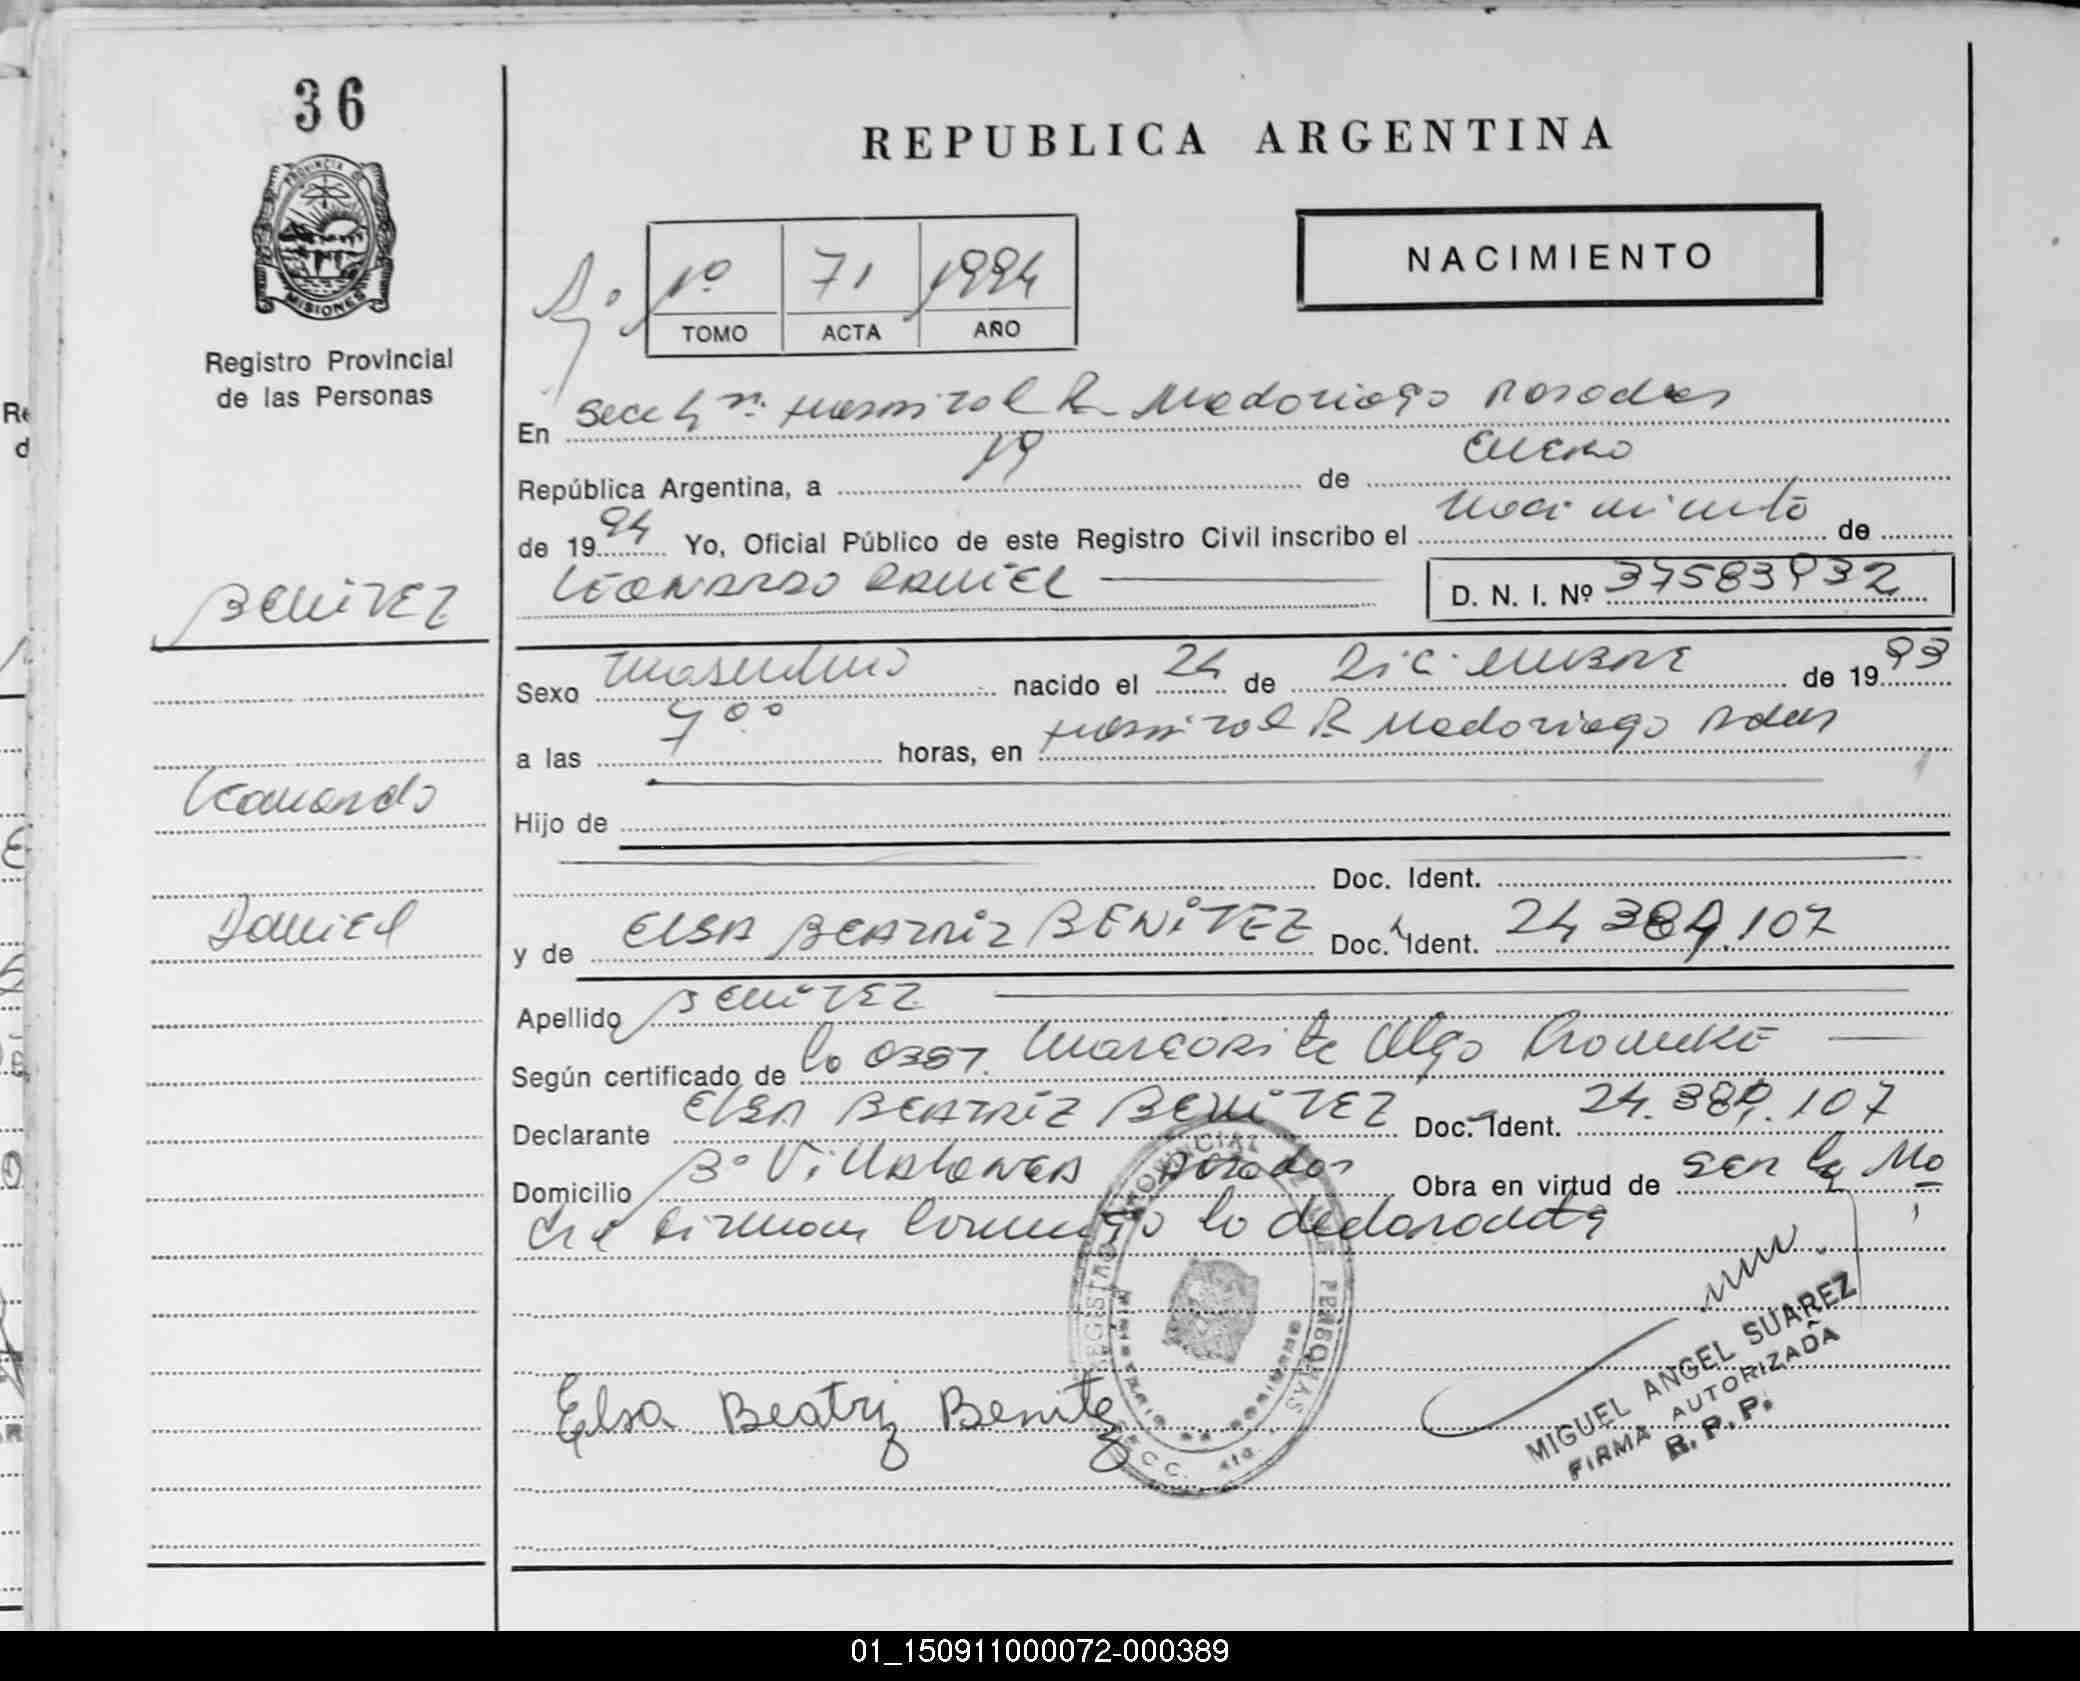 36
REPUBLICA ARGENTINA
PROVINCIA DE
MISIONES
Registro Provincial
de las Personas
NACIMIENTO
1º 71 1994
TOMO ACTA AÑO
En Secc 4ª Hospital R. Madariaga Posadas
República Argentina, a 19 de Enero
de 1994 Yo, Oficial Público de este Registro Civil inscribo el Nacimiento de
LEONARDO DANIEL D. N. I. Nº 37583932
BENITEZ
Sexo Masculino nacido el 24 de Diciembre de 1993
a las 7 00 horas, en Hospital R. Madariaga Pdas
Leonardo
Hijo de
Doc. Ident.
Daniel
y de ELSA BEATRIZ BENITEZ Doc. Ident. 24.389.107
Apellido BENITEZ
Según certificado de la Obst. Margarita Olga
Declarante ELSA BEATRIZ BENITEZ Doc. Ident. 24.389.107
Domicilio Bº Villalonga Posadas Obra en virtud de ser la Ma
dre Firman conmigo la declarante
REGISTRO PROVINCIAL DE LAS PERSONAS
SECC. 4ta.
Elsa Beatriz Benitez
MIGUEL ANGEL SUAREZ
FIRMA AUTORIZADA
R. P. P.
01_150911000072-000389